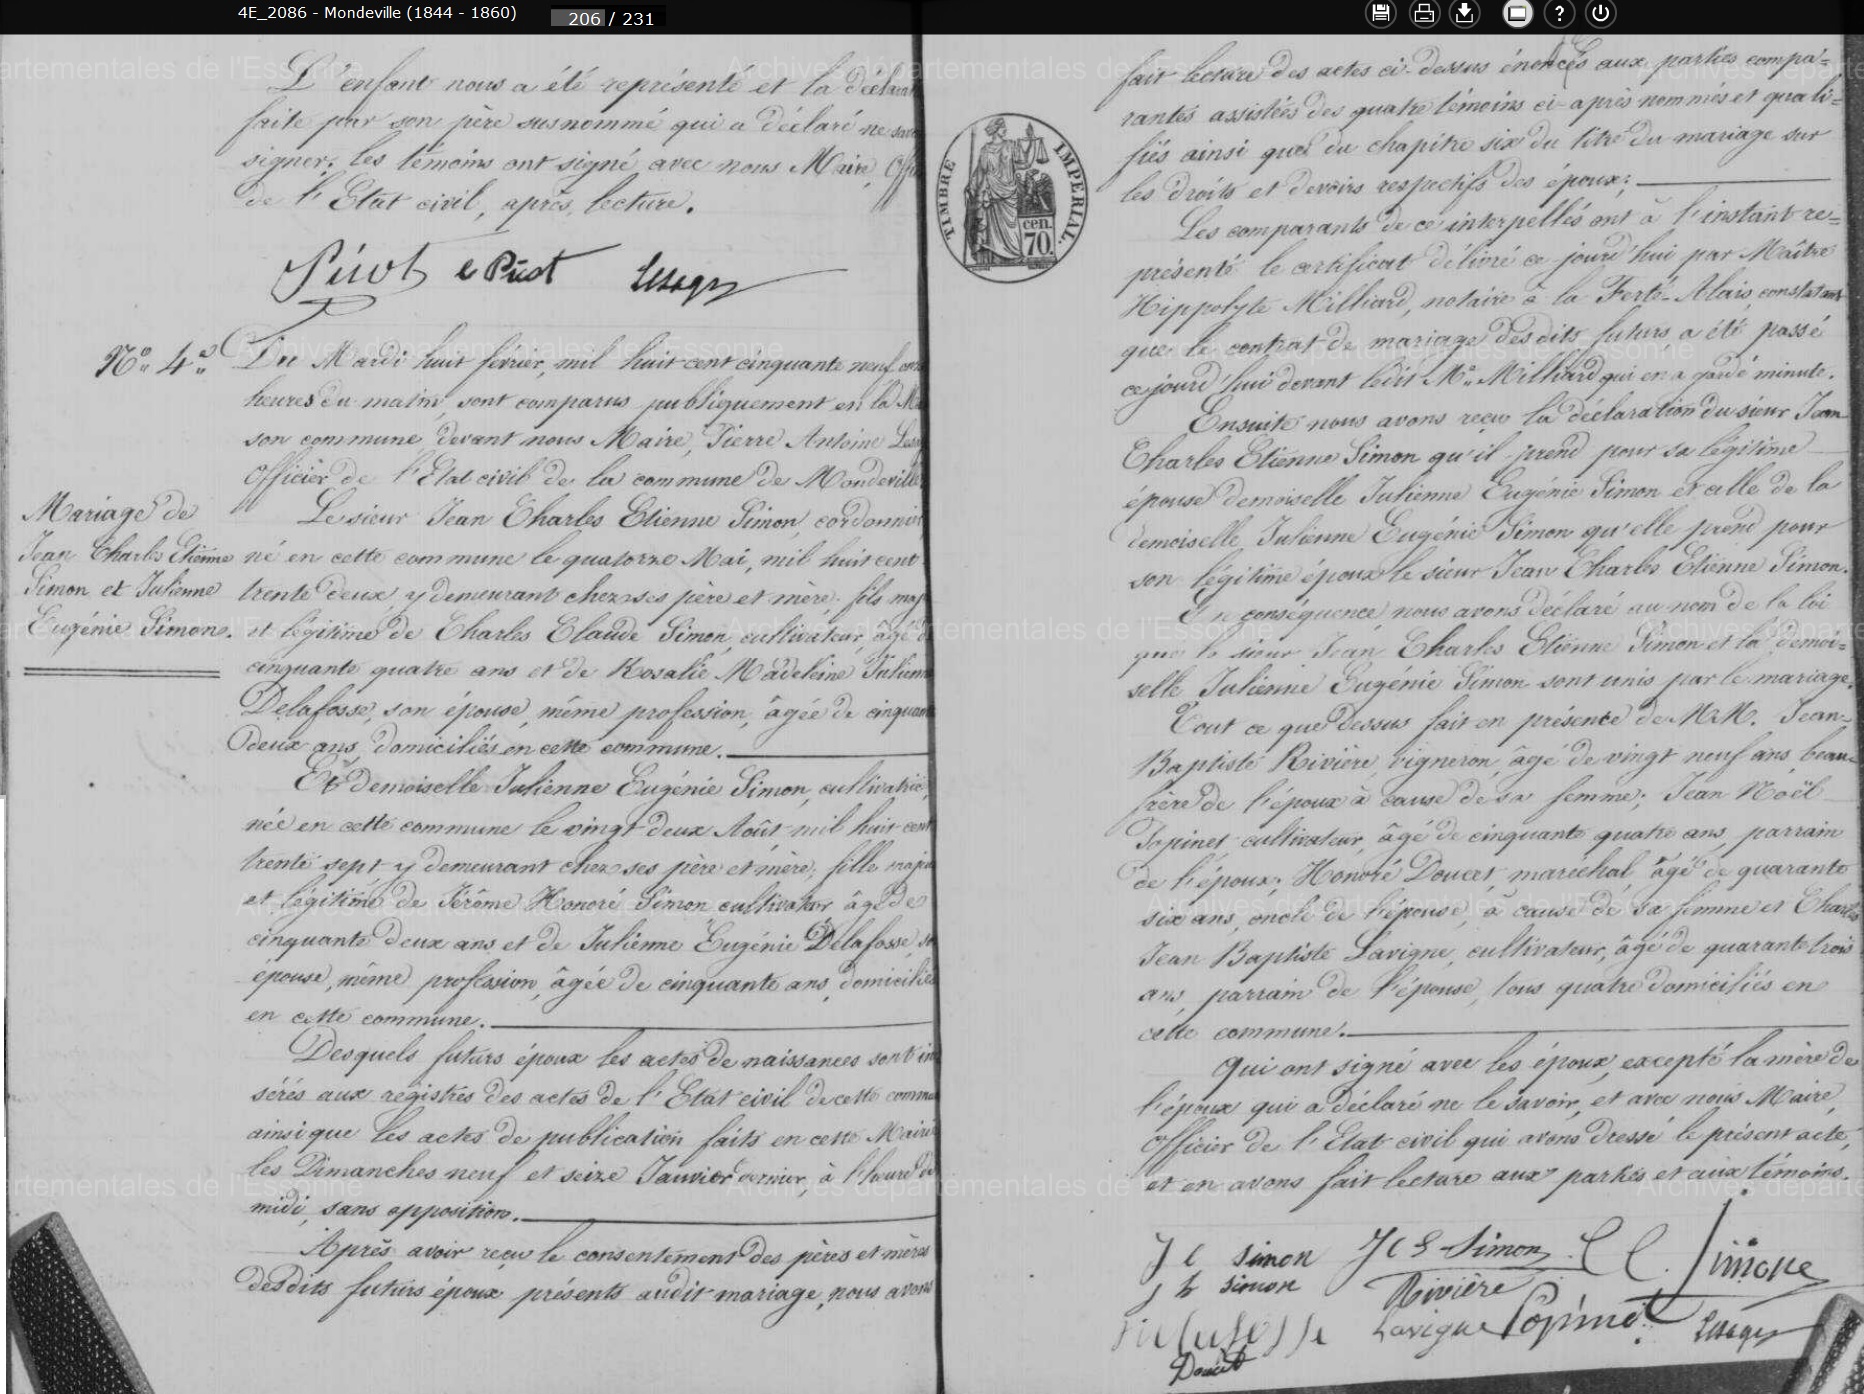 4E_2086 - Mondeville (1844 - 1860)
206 / 231
L'enfant nous a été représenté et la déclarat
faite par son père susnommé qui a déclaré ne sav
signer; les témoins ont signé avec nous Maire, Offi
de l'Etat civil, après lecture.
Lesage
Nº 4.
Du Mardi huit février, mil huit cent cinquante neuf, onz
heures du matin, sont comparus publiquement en la M
son commune devant nous Maire, Pierre Antoine Lesa
Officier de l'Etat civil de la commune de Mondeville
Mariage de
Jean Charles Etienne
Simon et Julienne
Eugénie Simon.
Le sieur Jean Charles Etienne Simon, cordonnier
né en cette commune le quatorze Mai, mil huit cent
trente deux, y demeurant chez ses père et mère, fils maj
et légitime de Charles Claude Simon, cultivateur, âgé de
cinquante quatre ans et de Rosalie Madeleine Julienn
Delafosse, son épouse, même profession, âgée de cinquant
deux ans, domiciliés en cette commune.
Et demoiselle Julienne Eugénie Simon, cultivatrice,
née en cette commune le vingt deux Août, mil huit cent
trente sept, y demeurant chez ses père et mère; fille maje
et légitime de Jérôme Honoré Simon cultivateur âgé de
cinquante deux ans et de Julienne Eugénie Delafosse, so
épouse, même profession, âgée de cinquante ans, domiciliés
en cette commune.
Desquels futurs époux les actes de naissances sont in
sérés aux registres des actes de l'Etat civil de cette commu
ainsi que les actes de publication faits en cette Mairie
les Dimanches neuf et seize Janvier dernier, à l'heure de
midi, sans opposition.
Après avoir reçu le consentement des pères et mères
desdits futurs époux présents audit mariage, nous avons
TIMBRE IMPERIAL.
cen.
70.
fait lecture des actes ci-dessus énoncés aux parties compa=
rantes assistées des quatre témoins ci-après nommés et quali=
fiés ainsi que du chapitre six du titre du mariage sur
les droits et devoirs respectifs des époux;
Les comparants de ce interpellés ont à l'instant re=
présenté le certificat délivré ce jourd'hui par Maître
Hippolyte Milliard, notaire à la Ferté-Alais, constatant
que le contrat de mariage desdits futurs, a été passé
ce jourd'hui devant ledit Me Milliard qui en a gardé minute.
Ensuite nous avons reçu la déclaration du sieur Jean
Charles Etienne Simon qu'il prend pour sa légitime
épouse demoiselle Julienne Eugénie Simon et celle de la
demoiselle Julienne Eugénie Simon qu'elle prend pour
son légitime époux le sieur Jean Charles Etienne Simon.
En conséquence, nous avons déclaré au nom de la loi
que le sieur Jean Charles Etienne Simon et la demoi=
selle Julienne Eugénie Simon sont unis par le mariage.
Tout ce que dessus fait en présence de M.M. Jean-
Baptiste Rivière, vigneron, âgé de vingt neuf ans, beau-
frère de l'époux à cause de sa femme; Jean Noël
Popinet cultivateur, âgé de cinquante quatre ans, parrain
de l'époux; Honoré Doucet, maréchal, âgé de quarante
six ans, oncle de l'épouse, à cause de sa femme et Charles
Jean Baptiste Lavigne, cultivateur, âgé de quarante trois
ans, parrain de l'épouse, tous quatre domiciliés en
cette commune.
Qui ont signé avec les époux, excepté la mère de
l'époux qui a déclaré ne le savoir, et avec nous Maire,
Officier de l'Etat civil qui avons dressé le présent acte,
et en avons fait lecture aux parties et aux témoins.
J C simon J C E Simon C C Simon
j h simon Rivière
Lavigne Popinet Lesage
Doucet